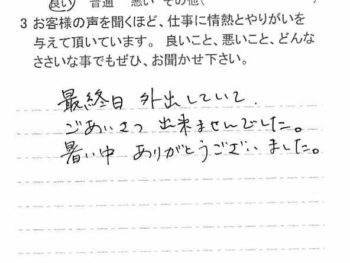 良い 普通 悪い その他(
3 お客様の声を聞くほど、仕事に情熱とやりがいを
与えて頂いています。良いこと、悪いこと、どんな
ささいな事でもぜひ、お聞かせ下さい。
最終日 外出していて、
ごあいさつ 出来ませんでした。
暑い中 ありがとうございました。